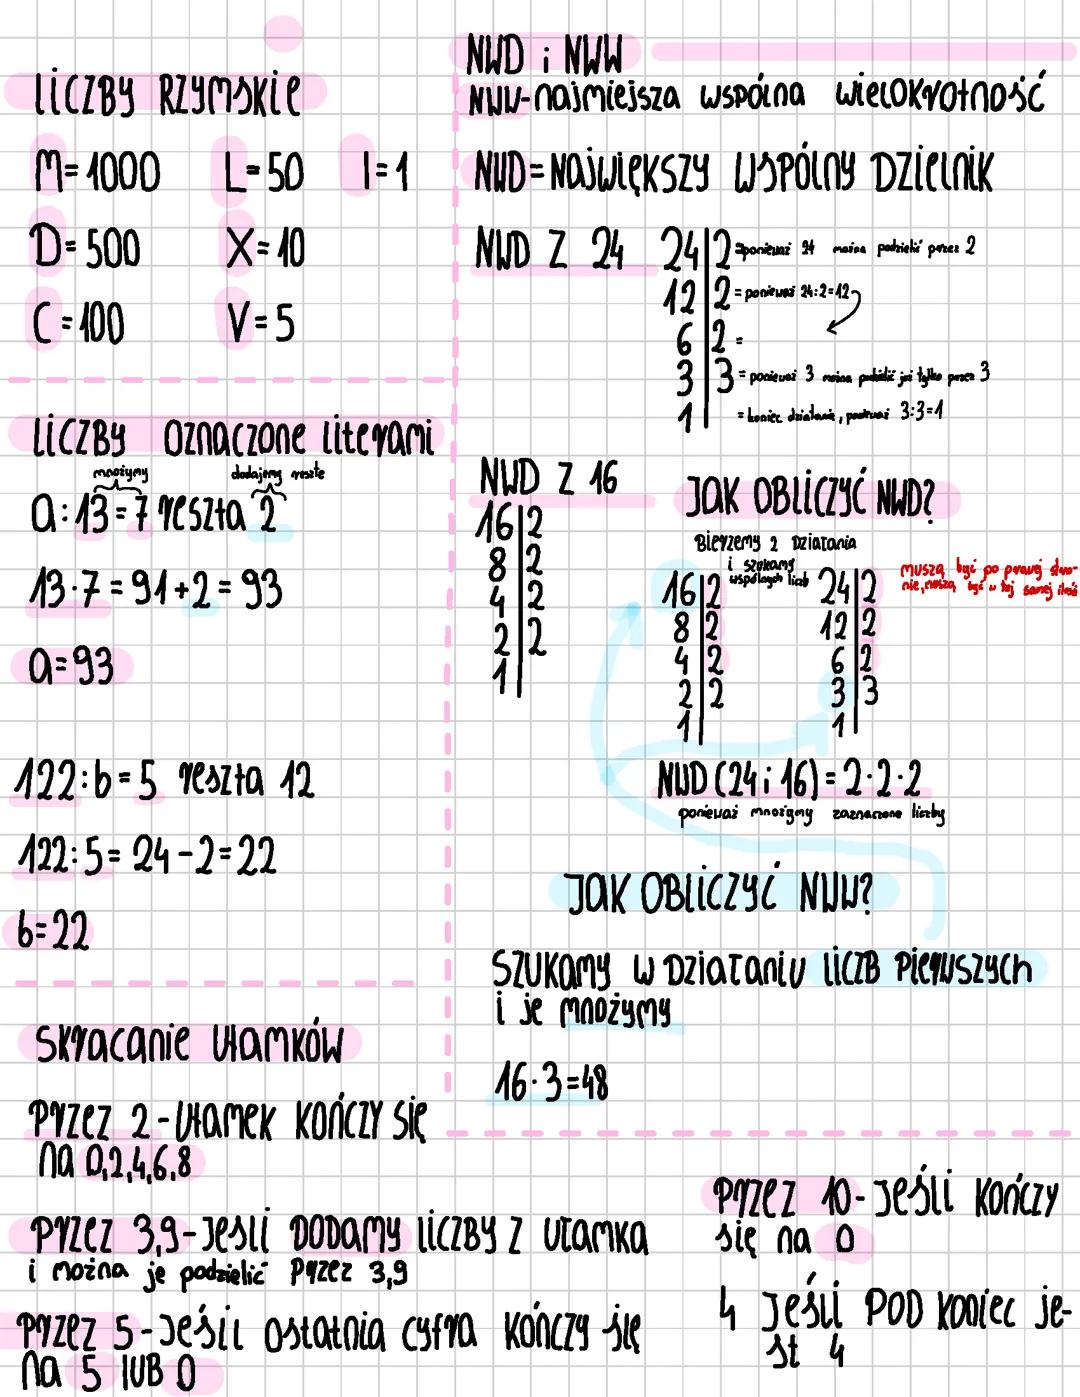 LICZBY RZYMSKIE
M=1000 L=50 I=1
D=500 X=10
C=100 V=5
LICZBY OZNACZONE literami
mnożymy dodajemy resztę
a:13=7 reszta 2
13·7=91+2=93
a=93
122:b=5 reszta 12
122:5=24-2=22
b=22
Skracanie ułamków
PRZEZ 2-UłameK KOńCZY SIę
na 0,2,4,6,8
PRZEZ 3,9-Jeśli DODAMY LICZBY Z Ułamka
i można je podzielić przez 3,9
PRZEZ 5-Jeśli ostatnia cyfra kończy się
na 5 lUB 0
NWD i NWW
NWW-najmiejsza wspólna wielokrotność
NWD=NAJWIęKSZY WSPÓLNY DZIELNIK
NWD Z 24
24|2=ponieważ 24 można podzielić przez 2
12|2=ponieważ 24:2=12
6|2=
3|3=ponieważ 3 można podzielić już tylko przez 3
1| =koniec działania, ponieważ 3:3=1
NWD Z 16
16|2
8|2
4|2
2|2
1|
JAK OBLICZYĆ NWD?
Bierzemy 2 Działania
i szukamy
wspólnych liczb
muszą być po prawej stro-
nie, muszą być w tej samej ilości
16|2 24|2
8|2 12|2
4|2 6|2
2|2 3|3
1| 1|
NWD (24 i 16)=2·2·2
ponieważ mnożymy zaznaczone liczby
JAK OBLICZYĆ NWW?
SZUKamy w Działaniu LICZB Pierwszych
i je mnożymy
16·3=48
PRZEZ 10-Jeśli kończy
się na 0
4 Jeśli POD koniec je-
st 4